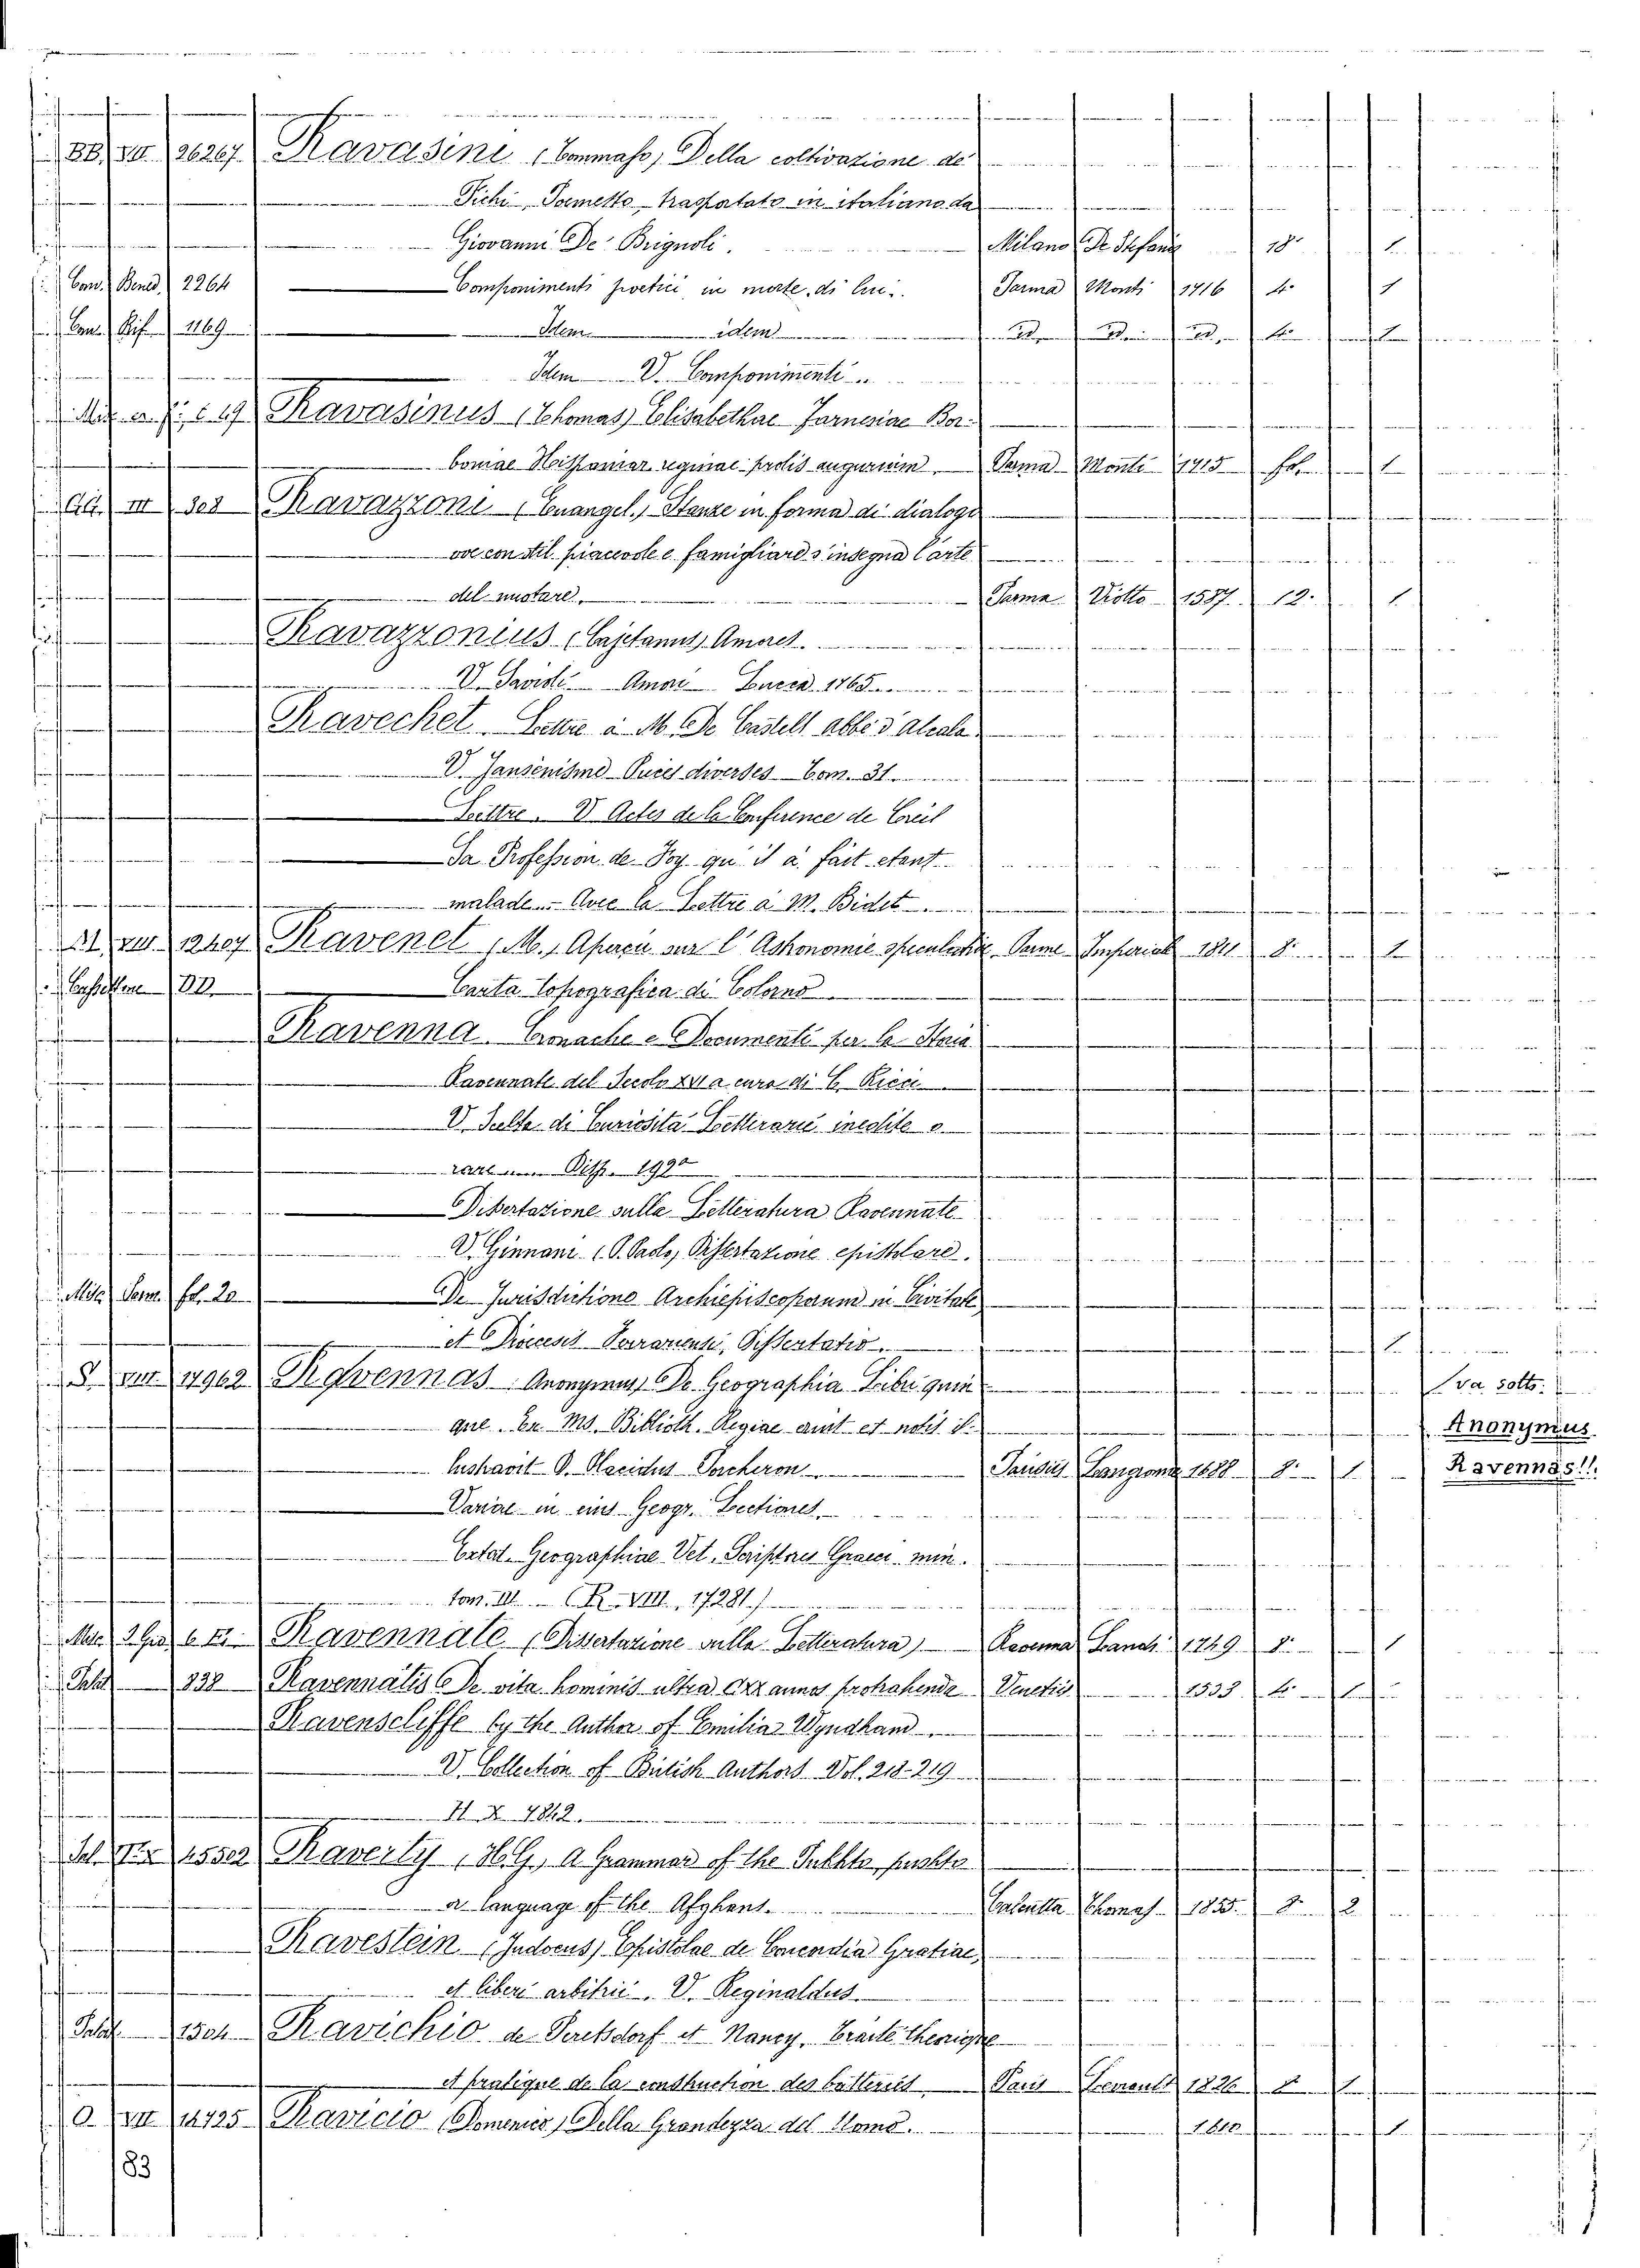 BB. VII 26267 Ravasini (Tommaso) Della coltivazione de'
Fichi, Poemetto traslatato in italiano da
Giovanni De' Brignoli. Milano De Stefanis 18° 1
Con. Bened. 2264 Componimenti poetici in morte di lui. Parma Monti 1716 4° 1
Con. Rif. 1169 Idem idem id. id. id. 4° 1
Idem V. Componimenti
Ravasinus (Thomas) Elisabethae Farnesiae Bor-
boniae Hispaniar. reginae prolis augurium. Parma Monti 1715 fol. 1
III 308 Ravazzoni (Evangel.) Stanze in forma di dialogo
ove con stil piacevole e famigliare s'insegna l'arte
del nuotare. Parma Viotto 1587. 12. 1
Ravazzonius (Cajetanus) Amores.
V. Savioli Amori Lucca 1765
Ravechet. Lettre à M. De Castell abbé d'Alcala
V. Jansenisme Pieces diverses Tom. 31
Lettre. V. Actes de la Conference de Creil
Sa Profession de Foy qu'il a fait etant
malade. Avec la Lettre à M. Bidet.
VII. 12407 Ravenet (M.) Aperçu sur l'Astronomie speculative Parme Imperial 1811 8° 1
Cassettone DD. Carta Topografica di Colorno
Ravenna. Cronache e Documenti per la Storia
Ravennate del Secolo XVI a cura di C. Ricci
V. Scelta di Curiosità Letterarie inedite o
rare Disp. 190a
Dissertazione sulla Letteratura Ravennate
V. Ginnani (P. Paolo) Dissertazione epistolare.
Misc. Parm. fol. 20 De Jurisdictione Archiepiscoporum in Civitate
et Diocesis, Dissertatio. 1
S. VIII. 17962 Ravennas Anonymus, De Geographia Libri quin-
que. Ex Ms. Biblioth. Regiae eruit et notis il-
lustravit D. Placidus Porcheron Parisiis Langronne 1688 8° 1
va sotto:
Anonymus
Ravennas!!.
Variae in eius Geogr. Lectiones.
Extat. Geographiae Vet. Scriptores Graeci min.
tom. III (R. VIII. 17281.)
Ravennate (Dissertazione sulla Letteratura) Ravenna Landi 1749 8° 1
Palat 838 Ravennatis De vita hominis ultra CXX annos protrahenda Venetiis 1553. 4° 1
Ravenscliffe by the Author of Emilia Wyndham
V. Collection of British Authors Vol. 218-219
H. X. 7842.
Sal. 15502 Raverty (H. G.) A Grammar of the Pukhto pushto
or language of the Afghans. Calcutta Thomas 1855. 8° 2
Ravestein (Judocus) Epistolae de Concordia Gratiae,
et liberi arbitrii. V. Reginaldus
Palat 1504 Ravichio de Peretsdorf et Nancy. Traité théorique
et pratique de la construction des batteries Paris 1826 8° 1
O. VII 14725 Ravicio (Domenico) Della Grandezza del Uomo. 1610 1
183